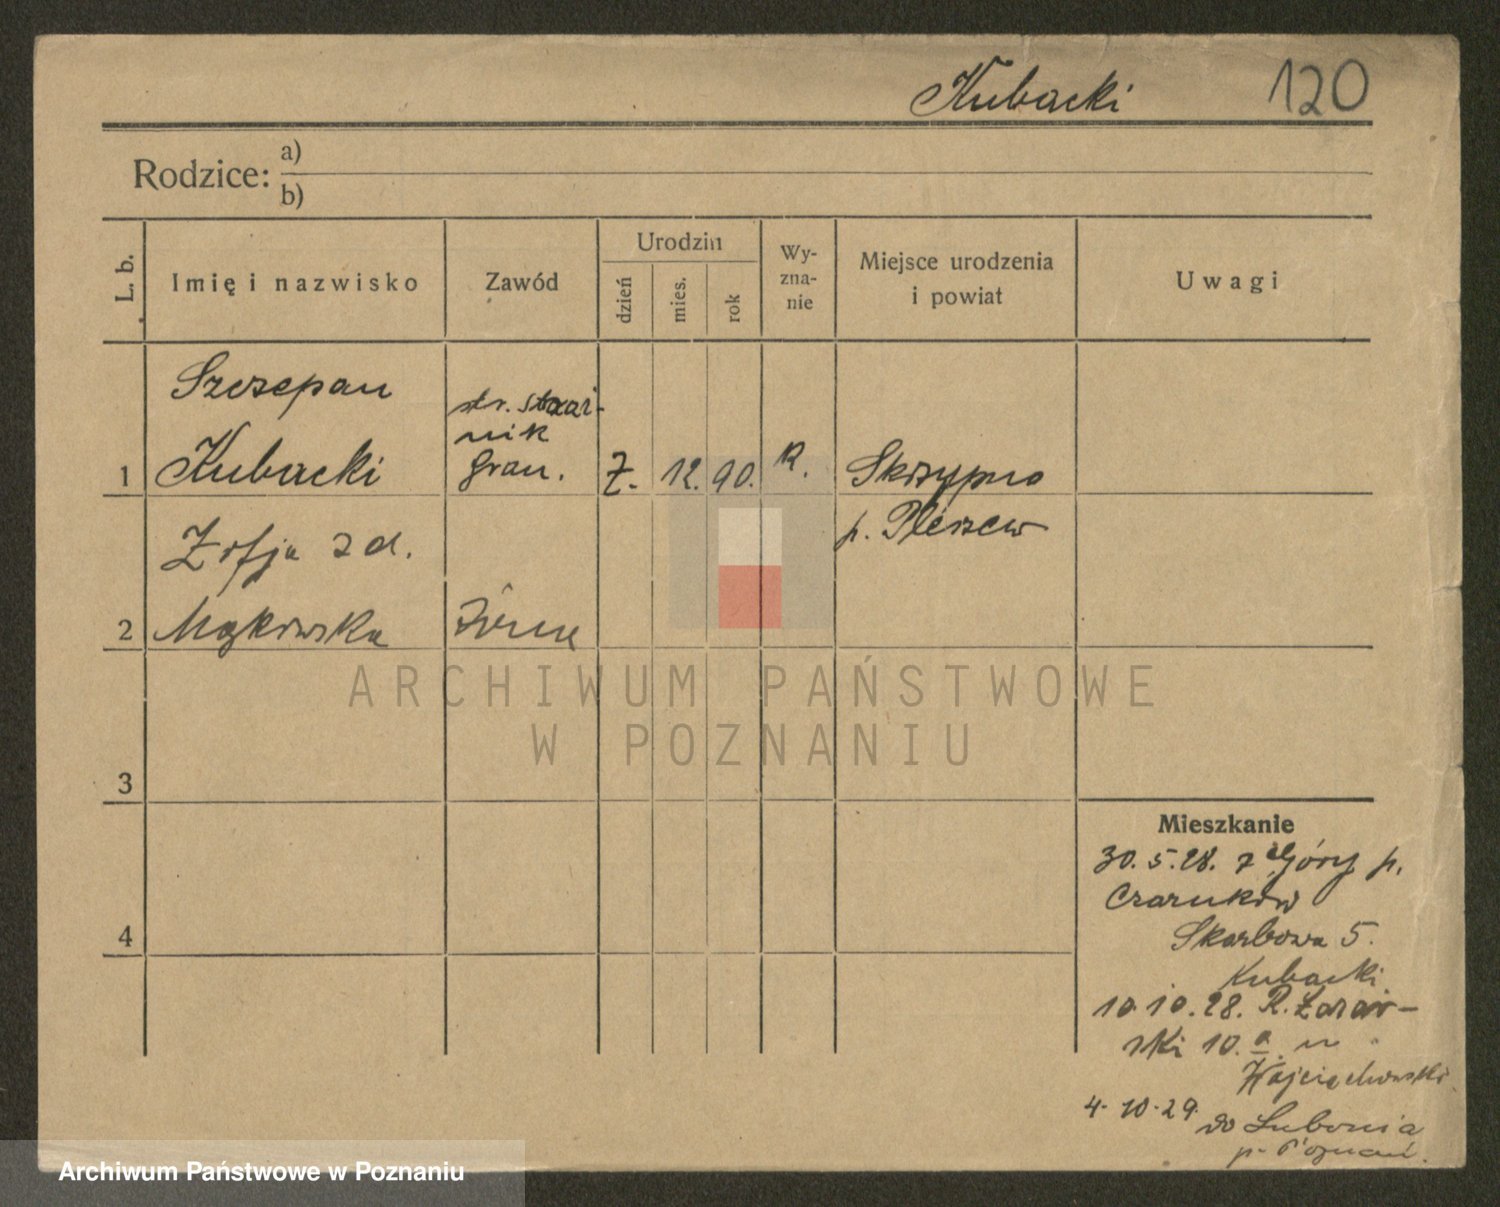 Kubacki 120
Rodzice: a)
b)
L. b.
Imię i nazwisko
Zawód
Urodzin
dzień
mies.
rok
Wy-
zna-
nie
Miejsce urodzenia
i powiat
Uwagi
Szczepan
str. straż-
nik
1 Kubacki gran. 7. 12. 90. R. Skrzypno
p. Pleszew
Zofja z d.
2 Mąkowska żona
ARCHIWUM PAŃSTWOWE
W POZNANIU
3
4
Mieszkanie
30. 5. 28. z Góry p.
Czarnków
Skarbowa 5.
Kubacki
10. 10. 28. R.
ski 10. a. u
Wojciechowski
4. 10. 29. do Lubonia
p. Poznań.
Archiwum Państwowe w Poznaniu